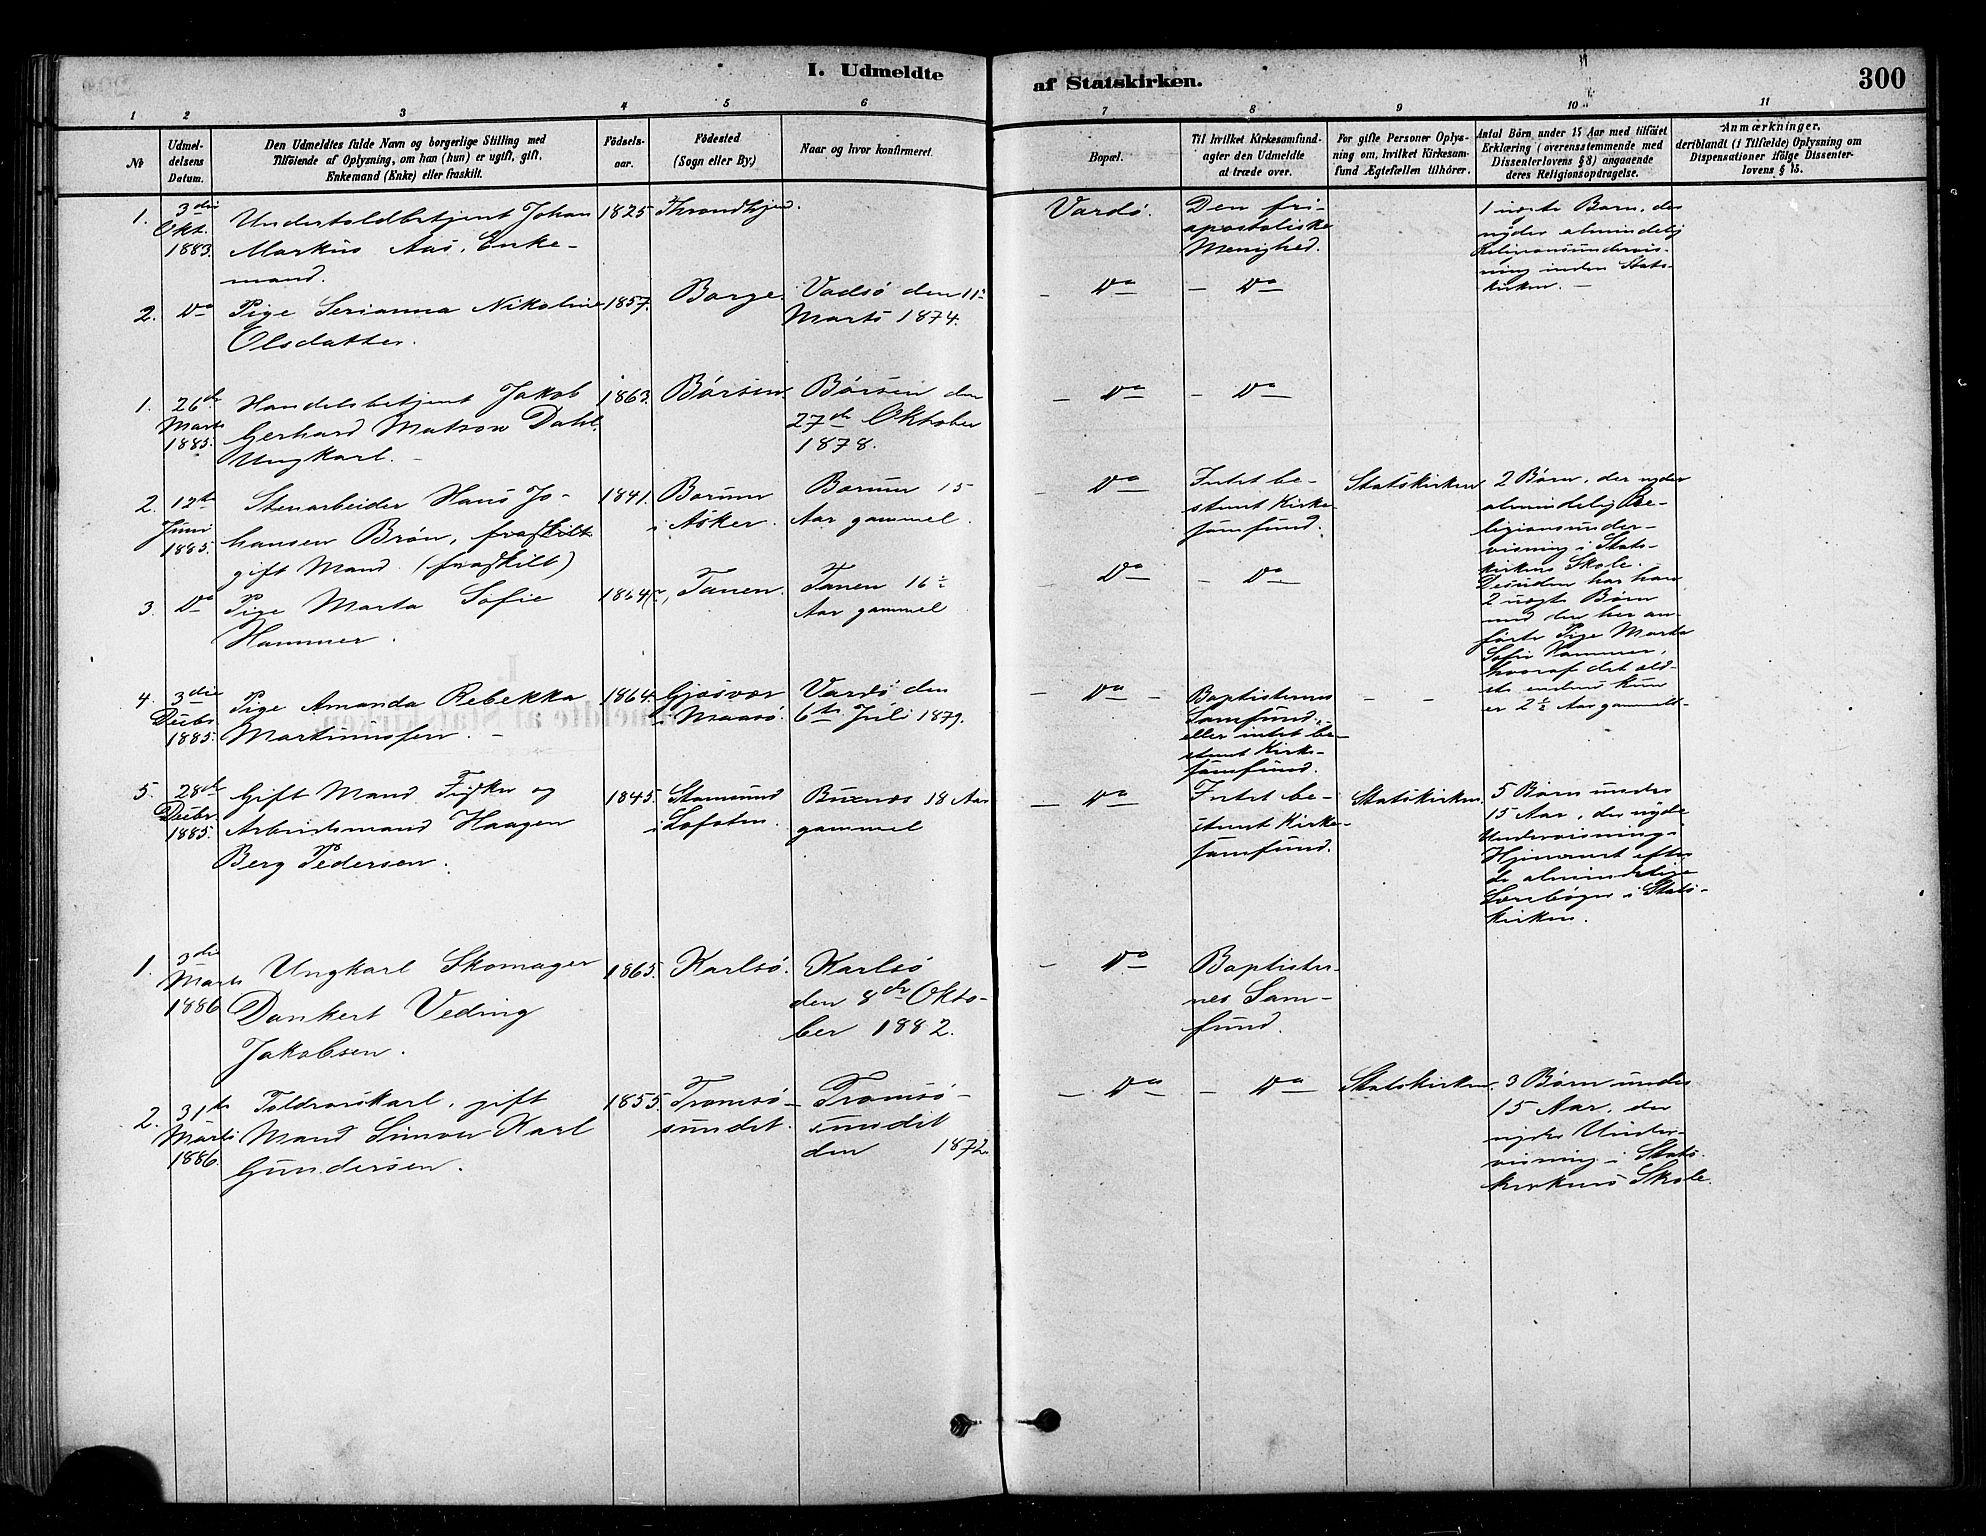 I. Udmeldte
af Statskirken.
300
1 2 3 4 5 6 7 8 9 10 11
No
Udmel-
delsens
Datum.
Den Udmeldtes fulde Navn og borgerlige Stilling med
Tilföiende af Oplysning, om han (hun) er ugift, gift,
Enkemand (Enke) eller fraskilt.
Födsels-
aar.
Födested
(Sogn eller By)
Naar og hvor konfirmeret.
Bopæl.
Til hvilket Kirkesamfund-
agter den Udmeldte
at træde over.
For gifte Personer Oplys-
ning om, hvilket Kirkesam-
fund Ægtefællen tilhörer.
Antal Börn under 15 Aar med tilföiet
Erklæring (overensstemmende med
Dissenterlovens § 8) angaaende
deres Religionsopdragelse.
Anmærkninger,
deriblandt (i Tilfælde) Oplysning om
Dispensationer ifölge Dissenter-
lovens § 15.
1.
3die
Okt.
1883.
Undertoldbetjent Johan
Markus Aas, Enke-
mand.
1825
Throndhjem.
Vardö.
Den fri-
apostoliske
Menighed.
1 uægte Barn, der
nyder almindelig
Religionsundervis-
ning inden Stats-
kirken. -
2.
Do
Pige Serianna Nikoline
Olsdatter.
1857.
Borge.
Vadsö den 11te
Marts 1874.
- Do
- Do
1.
26de
Marts
1885.
Handelsbetjent Jakob
Gerhard Matson Dahl.
Ungkarl. -
1863.
Börsen.
Börsen den
27de Oktober
1878.
- Do
- Do
2.
12te
Juni
1885.
Stenarbeider Hans Jo-
hansen Brön, fraskilt
gift Mand. (fraskilt)
1841.
Bærum
i Asker.
Bærum 15
Aar gammel.
- Do
Intet be-
stemt Kirke-
samfund.
Statskirken
2 Börn, der nyder
almindelig Re-
ligionsunder-
visning i Stats-
kirkens Skole.
Desuden har han
2 uægte Börn
med den her an-
förte Pige Marta
Sofie Hammer,
hvoraf det æld-
ste endnu kun
er 2½ Aar gammelt.
3.
Do
Pige Marta Sofie
Hammer.
1864
Tanen.
Tanen 16½
Aar gammel.
- Do
- Do
4
3die
Decbr
1885.
Pige Amanda Rebekka
Martinussen. -
1864.
Gjæsvær
i Maasö.
Vardö den
6te Juli 1879.
- Do -
Baptisternes
Samfund,
eller intet be-
stemt Kirke-
samfund.
- -
5.
28de
Decbr.
1885.
Gift Mand Fisker og
Arbeidsmand Haagen
Berg Pedersen.
1845.
Stamsund
i Lofoten.
Buxnæs 18 Aar
gammel
- Do
Intet be-
stemt Kirke-
samfund.
Statskirken.
5 Börn under
15 Aar, der nyde
Undervisning i
Hjemmet efter
de almindelige
Læreböger i Stats-
kirken.
1.
3die
Marts
1886
Ungkarl Skomager
Dankert Veding
Jakobsen.
1865.
Karlsö.
Karlsö
den 8de Okto-
ber 1882.
- Do
Baptister-
nes Sam-
fund.
2.
31te
Marts
1886.
Toldroerskarl, gift
Mand Simon Karl
Gundersen.
1855.
Tromsö-
sundet.
Tromsö-
sundet
den 1872.
- Do
- Do
Statskirken.
3 Börn under
15 Aar, der
nyder Under-
visning i Stats-
kirkens Skole.